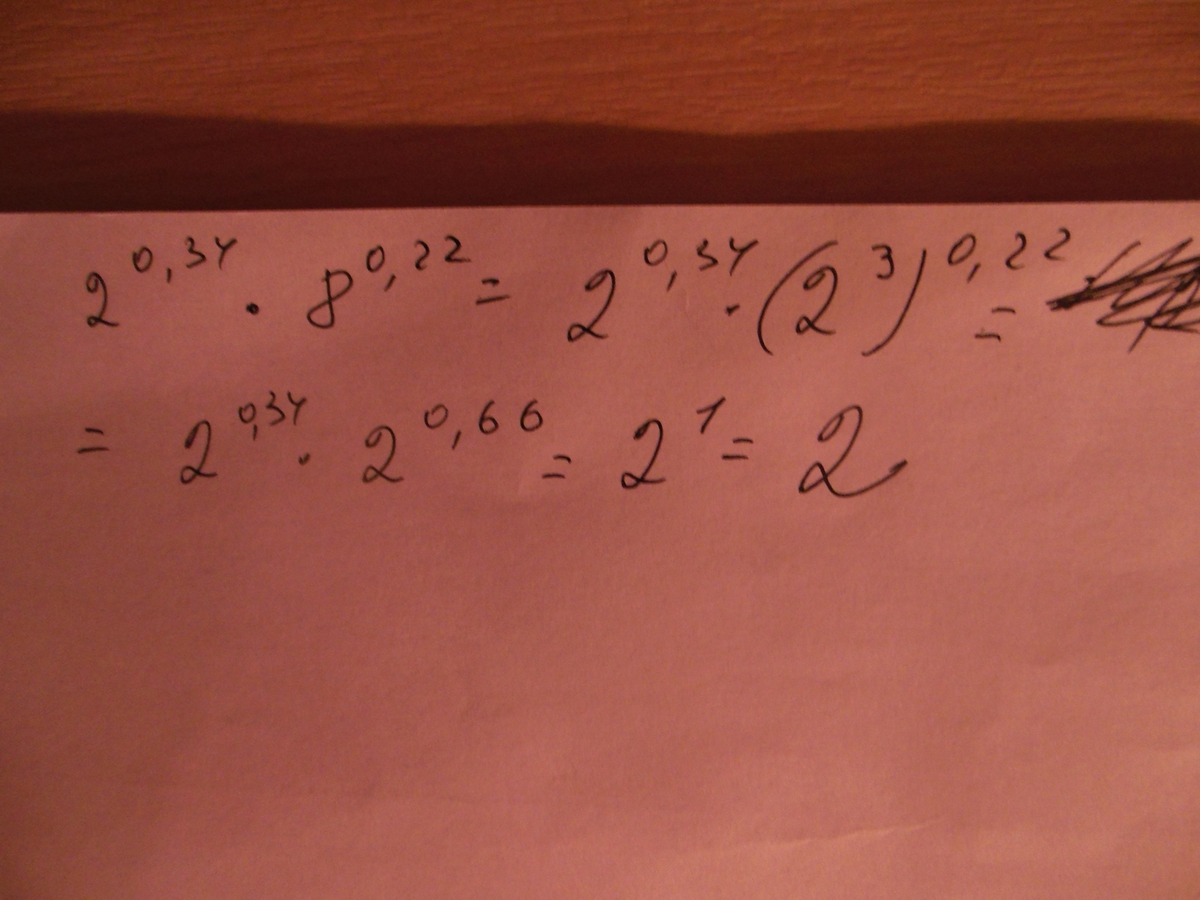 2^0,34 · 8^0,22 = 2^0,34 · (2^3)^0,22 =
= 2^0,34 · 2^0,66 = 2^1 = 2